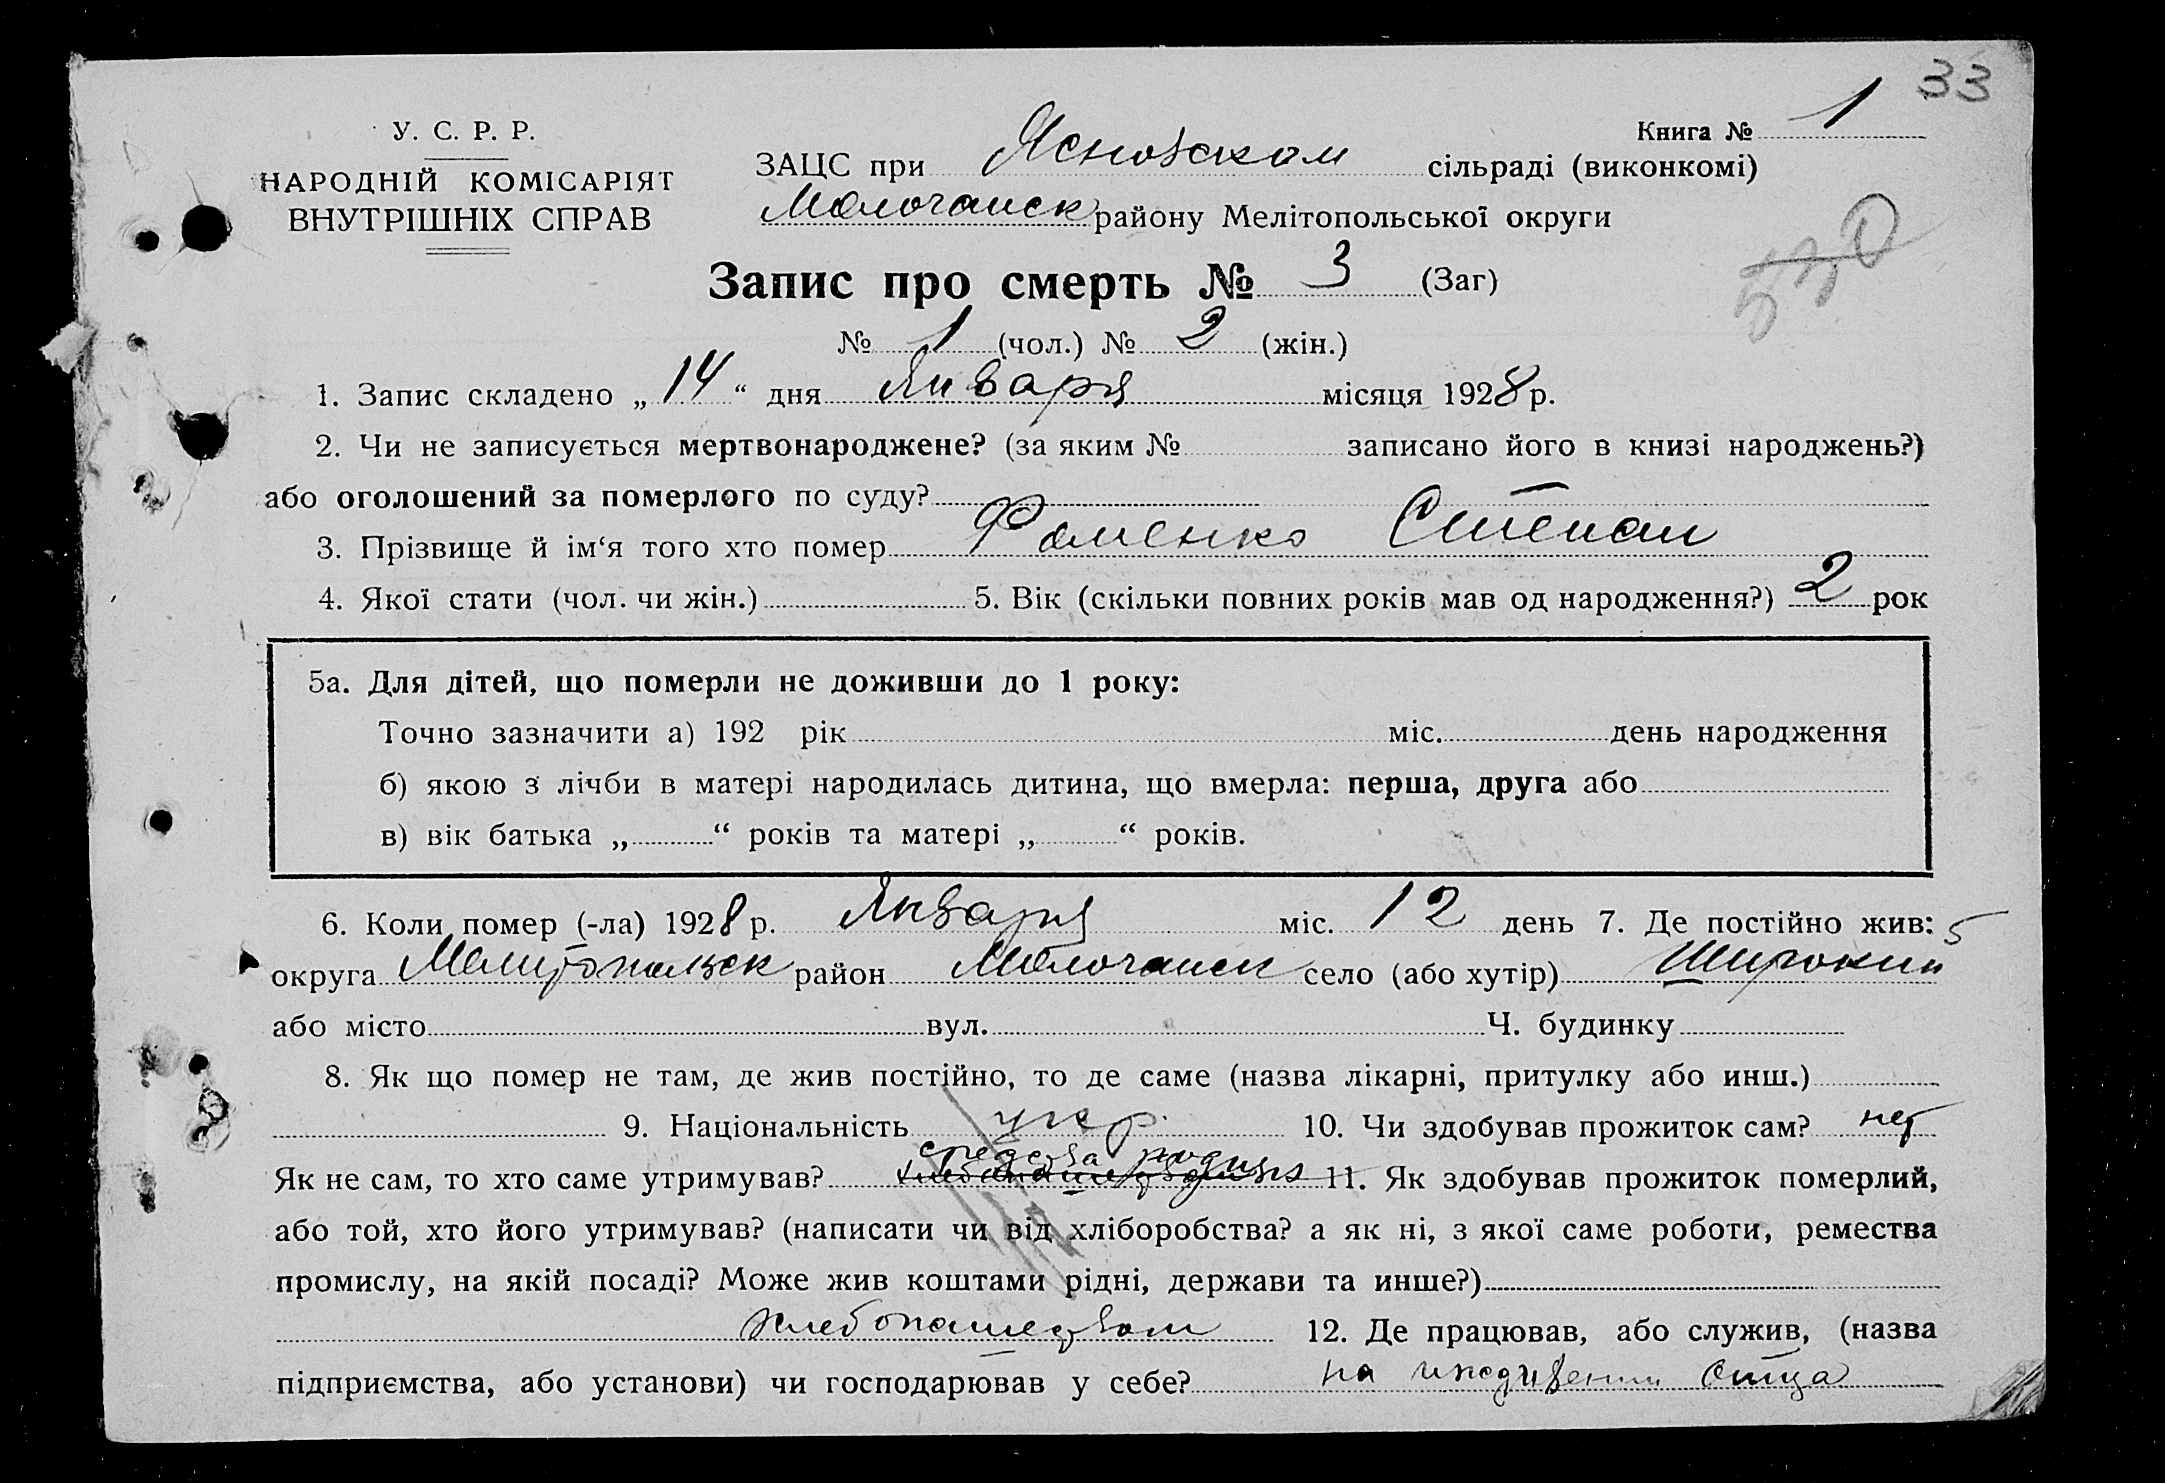 33
У. С. Р. Р.
НАРОДНІЙ КОМІСАРІЯТ
ВНУТРІШНІХ СПРАВ
Книга № 1
ЗАЦС при Ясновском сільраді (виконкомі)
Молочанск району Мелітопольської округи
Запис про смерть № 3 (Заг)
№ 1 (чол.) № 2 (жін.)
1. Запис складено „ 14 “ дня Января місяця 1928 р.
2. Чи не записується мертвонароджене? (за яким № записано його в книзі народжень?)
або оголошений за померлого по суду?
3. Прізвище й ім‘я того хто помер Фоменко Степан
4. Якої стати (чол. чи жін.) 5. Вік (скільки повних років мав од народження?) 2 рок
5а. Для дітей, що померли не доживши до 1 року:
Точно зазначити а) 192 рік міс. день народження
б) якою з лічби в матері народилась дитина, що вмерла: перша, друга або
в) вік батька „ “ років та матері „ “ років.
6. Коли помер (-ла) 1928 р. Января міс. 12 день 7. Де постійно жив: 5
округа Мелитопольск район Молочанск село (або хутір) Широкий
або місто вул. Ч. будинку
8. Як що помер не там, де жив постійно, то де саме (назва лікарні, притулку або инш.)
9. Національність укр. 10. Чи здобував прожиток сам? нет
Як не сам, то хто саме утримував? средства 11. Як здобував прожиток померлий,
або той, хто його утримував? (написати чи від хліборобства? а як ні, з якої саме роботи, ремества
промислу, на якій посаді? Може жив коштами рідні, держави та инше?)
хлебопашеством 12. Де працював, або служив, (назва
підприємства, або установи) чи господарював у себе? на иждивении Отца